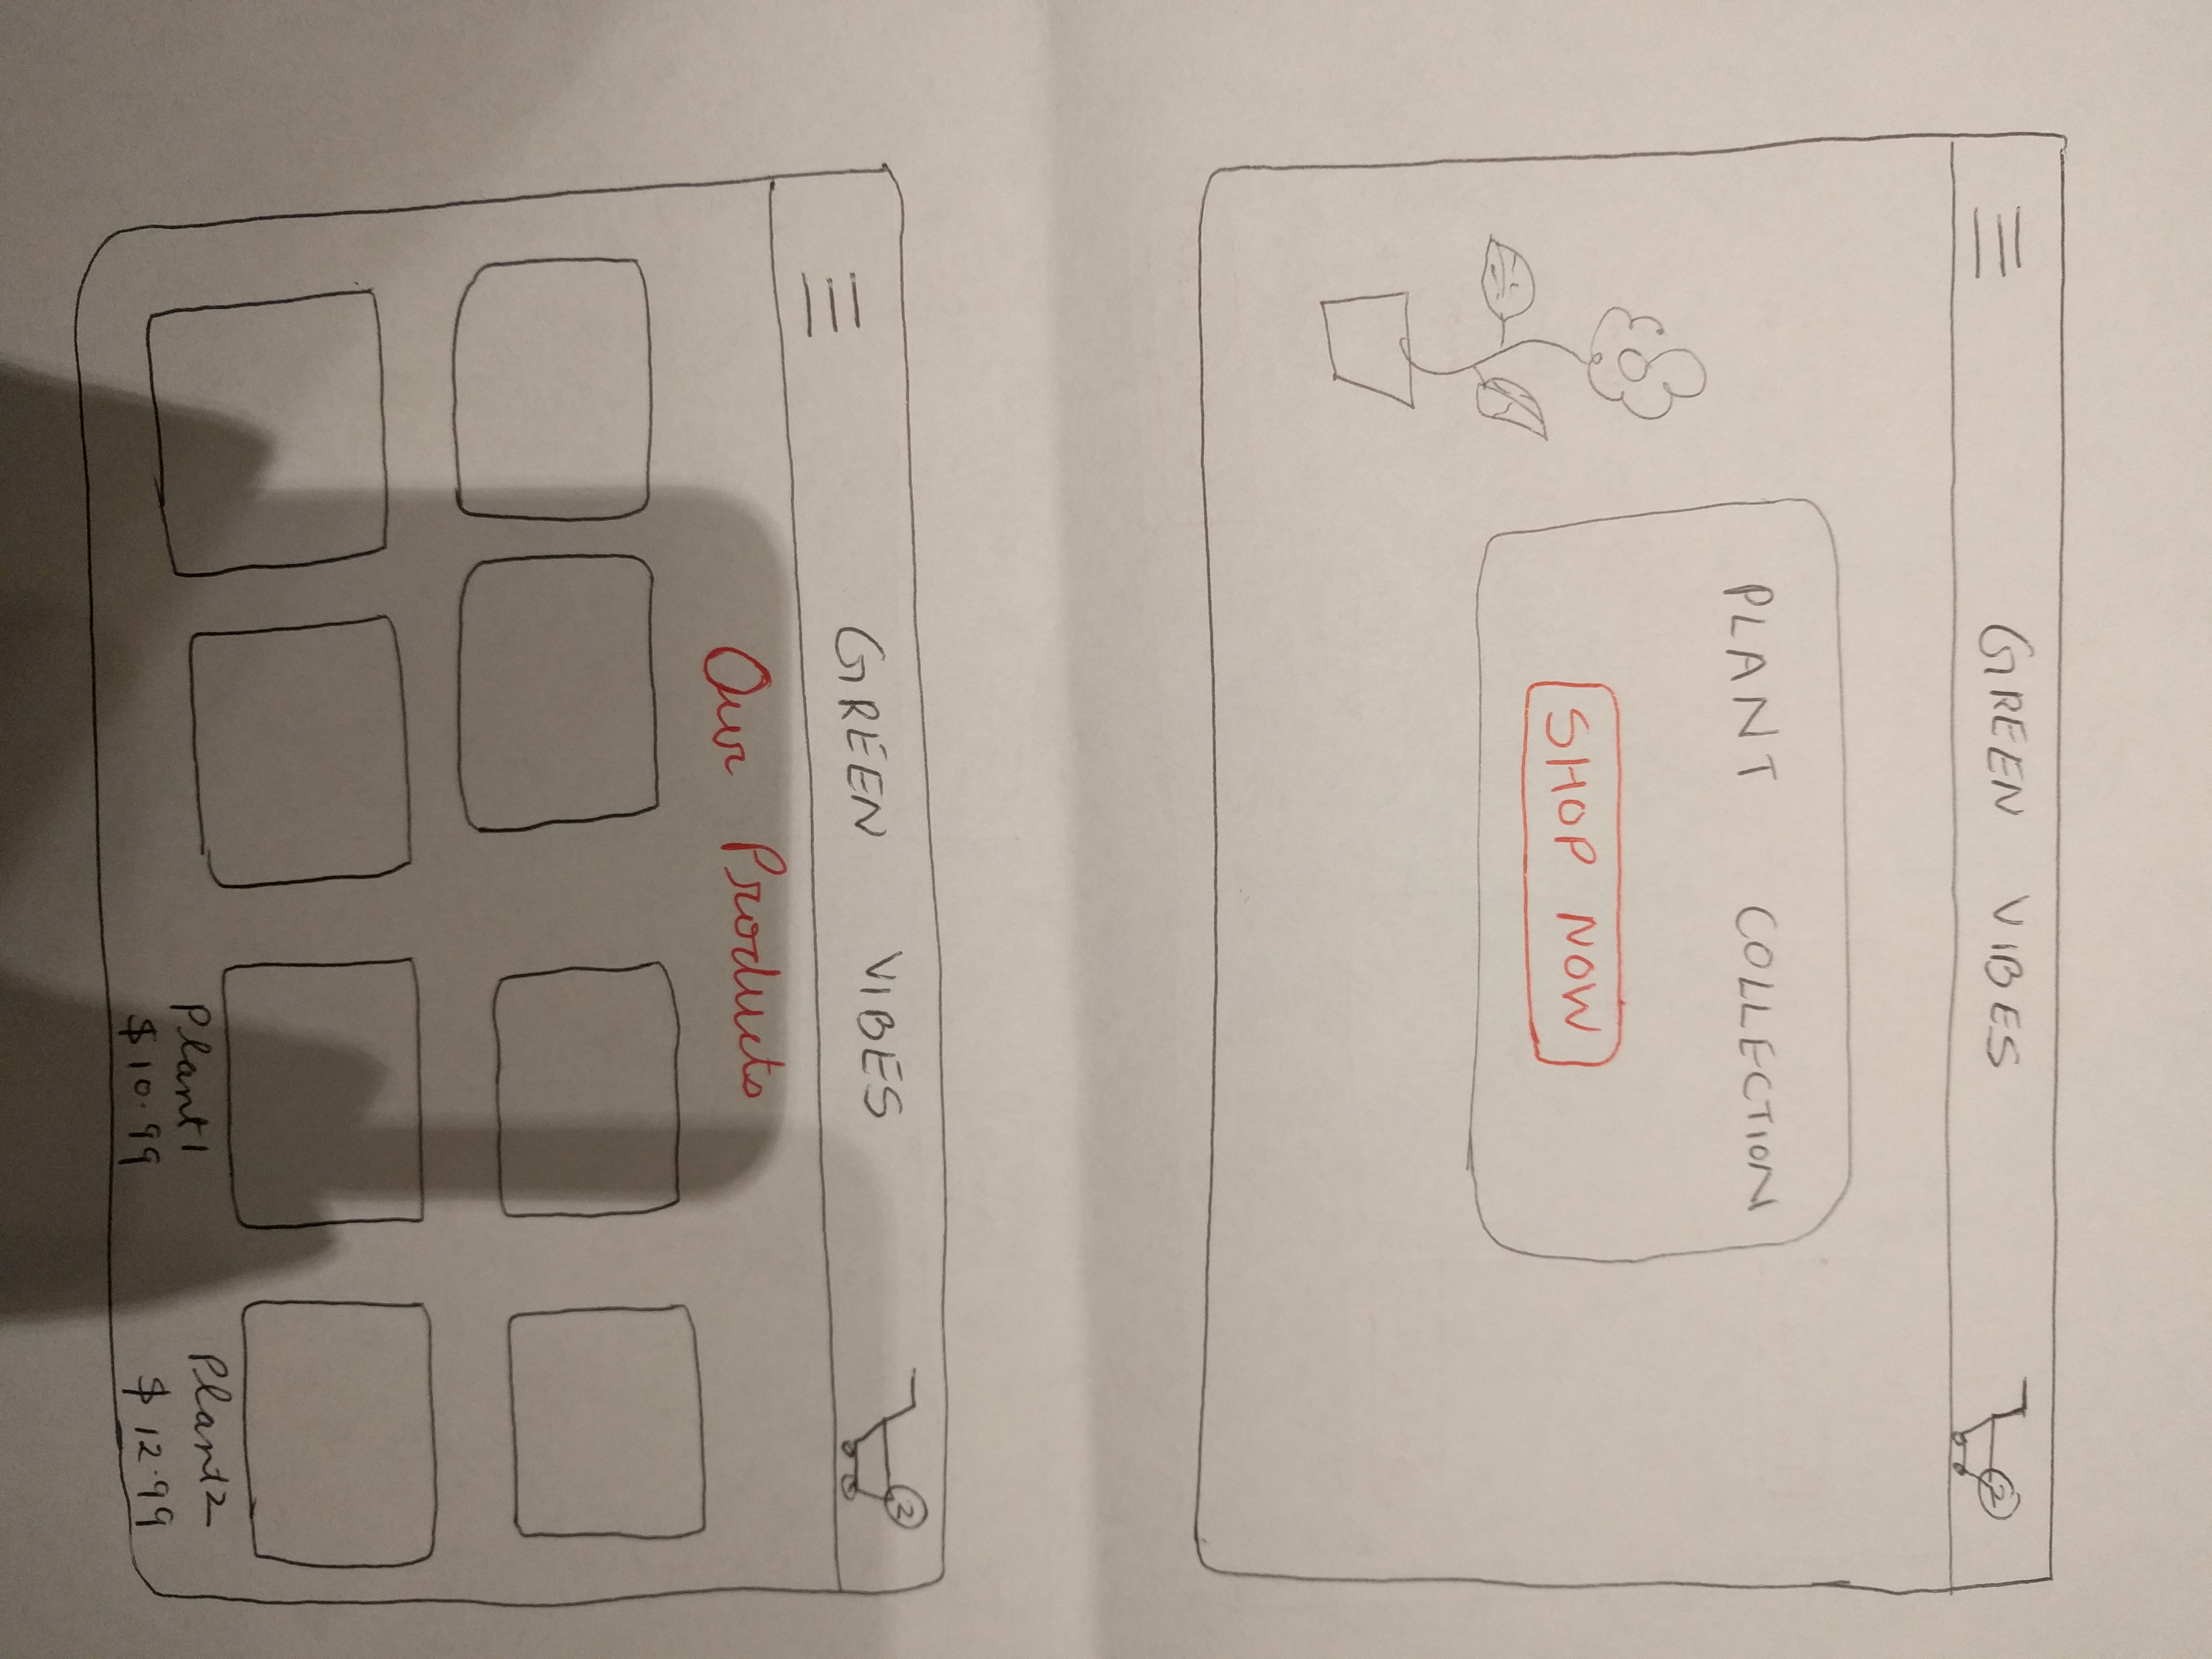 GREEN VIBES
2
PLANT COLLECTION
SHOP NOW
GREEN VIBES
2
Our Products
Plant1
$10.99
Plant2
$12.99